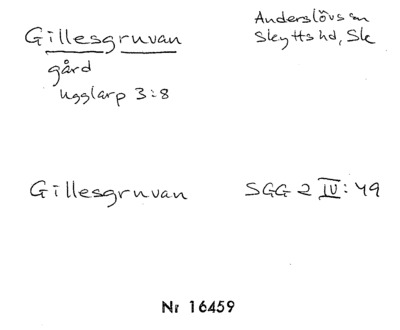 Gillesgruvan
Anderslövs sn
Skytts hd, Sk
gård
Ugglarp 3:8
Gillesgruvan
SGG 2 IV: 49
Nr 16459